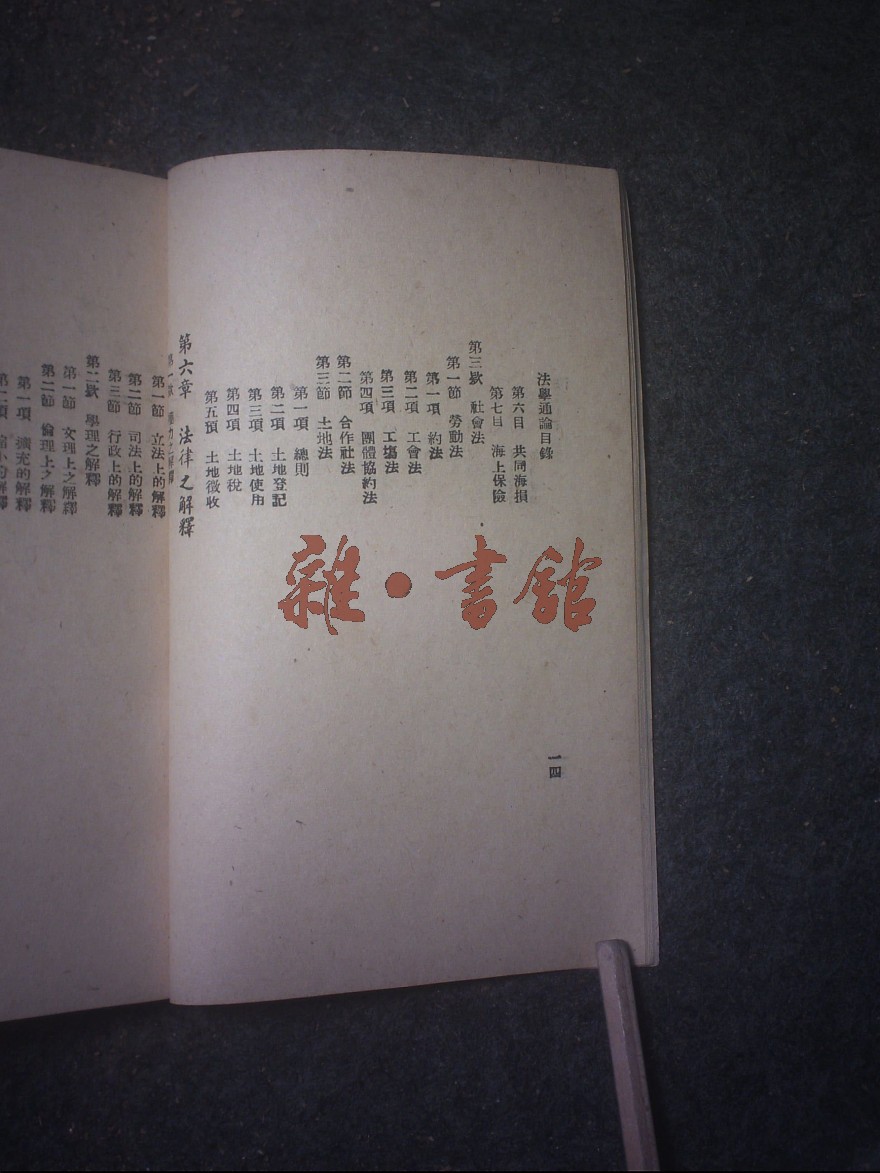 法學通論目錄
第六目 共同海損
第七目 海上保險
第三欵 社會法
第一節 勞動法
第一項 約法
第二項 工會法
第三項 工塲法
第四項 團體協約法
第二節 合作社法
第三節 土地法
第一項 總則
第二項 土地登記
第三項 土地使用
第四項 土地稅
第五預 土地徵收
一四
第六章 法律之解釋
第一節 立法上的解釋
第二節 司法上的解釋
第三節 行政上的解釋
第二欵 學理之解釋
第一節 文理上之解釋
第二節 倫理上之解釋
第一項 擴充的解釋
雜·書館